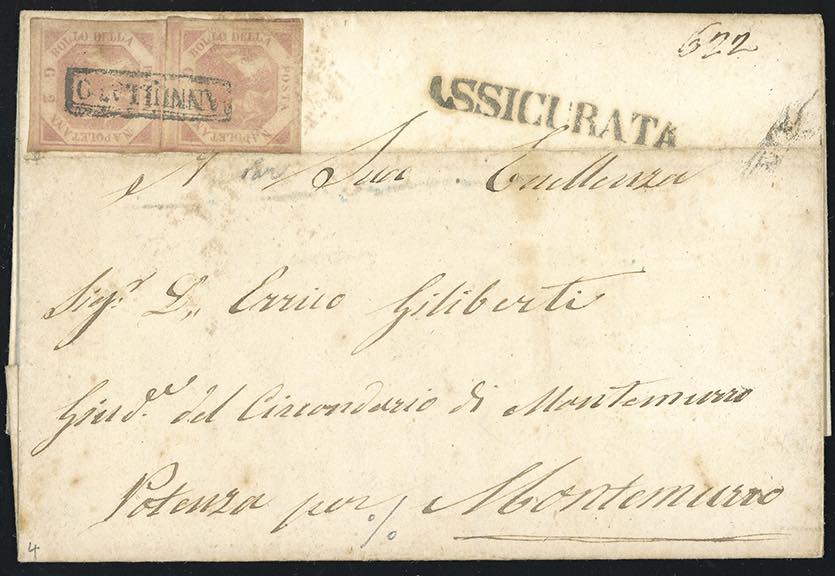 BOLLO DELLA POSTA NAPOLETANA G 2
BOLLO DELLA POSTA NAPOLETANA G 2
ANNULLATO
ASSICURATA
622
A Sua Eccellenza
Sig.r D. Errico Giliberti
Giud.e del Circondario di Montemurro
Potenza per Montemurro
4